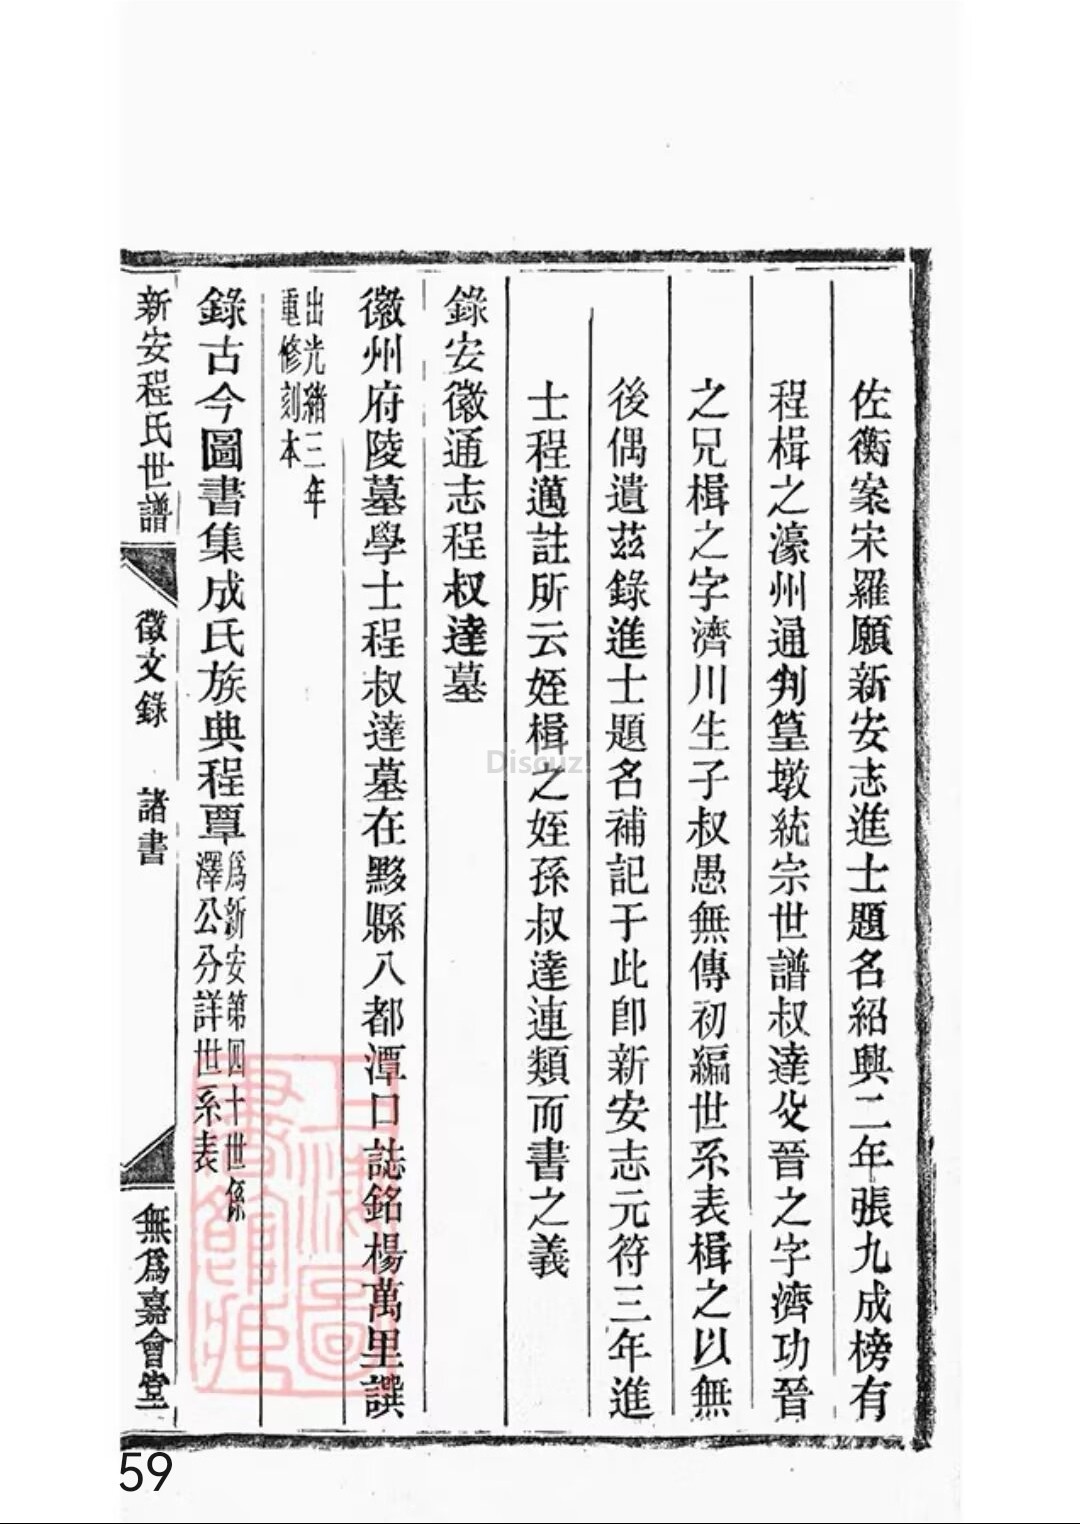 佐衡案宋羅願新安志進士題名紹興二年張九成榜有
程楫之濠州通判篁墩統宗世譜叔達父晉之字濟功晉
之兄楫之字濟川生子叔愚無傳初編世系表楫之以無
後偶遺茲錄進士題名補記于此卽新安志元符三年進
士程邁註所云姪楫之姪孫叔達連類而書之義
錄安徽通志程叔達墓
徽州府陵墓學士程叔達墓在黟縣八都潭口誌銘楊萬里譔
出光緒三年
重修刻本
錄古今圖書集成氏族典程覃
爲新安第四十世係
澤公分詳世系表
新安程氏世譜
徵文錄 諸書
無爲嘉會堂
上海圖書館藏
Discuz!
59